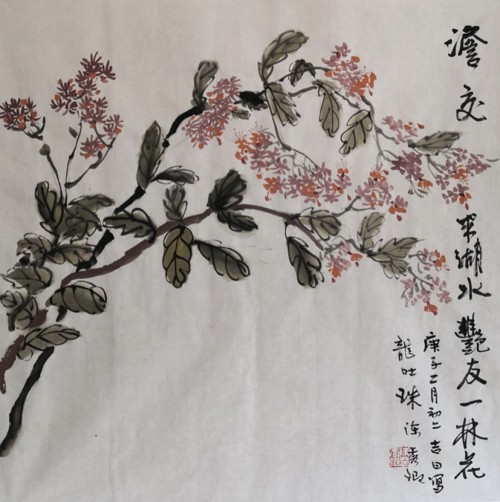 澹交半湖水艷友一林花
庚子二月初二吉日寫
龍吐珠